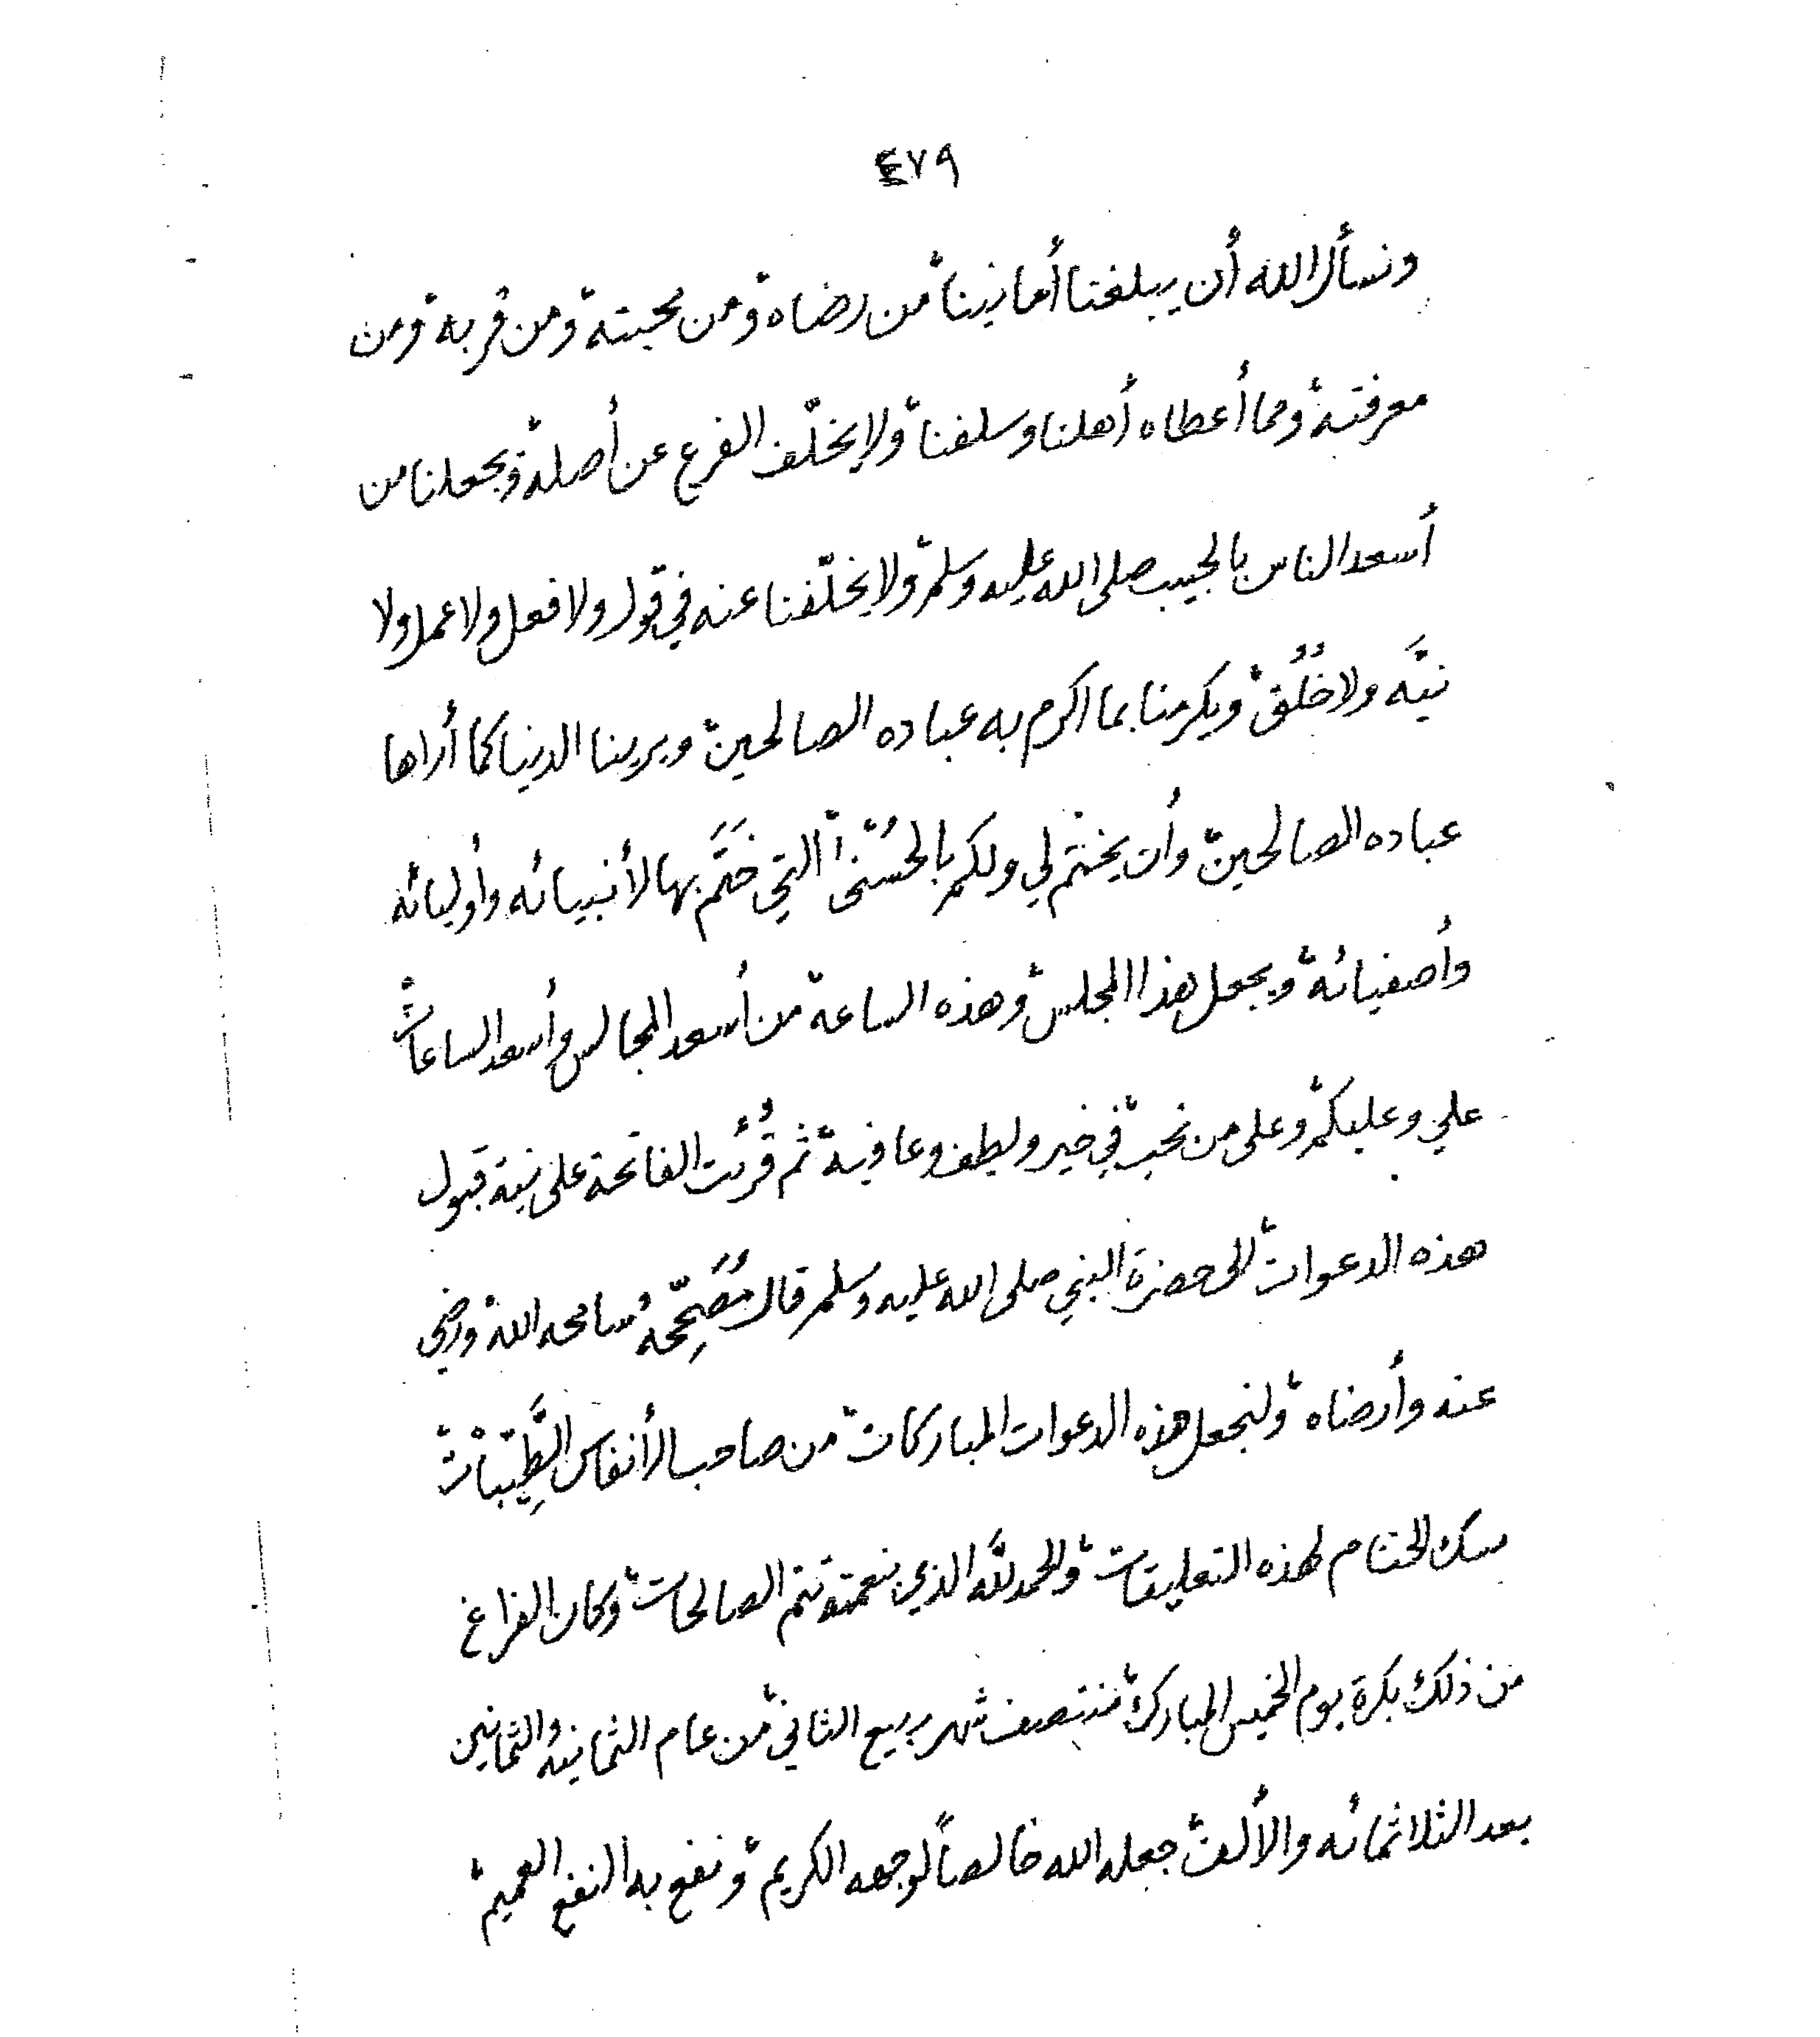 ٤٧٩
ونسأل الله أن يبلغنا أمانينا، من رضاه، ومن محبته، ومن قربه، ومن
معرفته، ومما أعطاه أهلنا وسلفنا، ولا يخلّف الفرع عن أصله، ويجعلنا من
أسعد الناس بالحبيب صلى الله عليه وسلم، ولا يخلّفنا عنه في قول ولا فعل ولا عمل ولا
نيَّه ولا خُلُق، ويكرمنا بما اكرم به عباده الصالحين، ويرينا الدنيا كما أراها
عباده الصالحين، وأن يختم لي ولكم بالحُسْنى، التي خَتَمَ بها لأنبيائه وأوليائه
وأصفيائه، ويجعل هذا المجلس، وهذه الساعة، من أسعد المجالس وأسعد الساعات،
علي وعليكم، وعلى من نحب، في خير ولطف وعافية، ثم قُرُئت الفاتحة على نية قبول
هذه الدعوات، الى حضرة النبي صلى الله عليه وسلم قال مُصَحِّحُه، سامحه الله، ورضي
عنه وأرضاه، ولنجعل هذه الدعوات المباركات، من صاحب الأنفاس الطَّيِّبات،
مسك الختام لهذه التعليقات، والحمد للَّه الذي بنعمته تتم الصالحات، وكان الفراغ
من ذلك بكرة يوم الخميس المبارك، منتصف شهر ربيع الثاني، من عام الثمانيه والثمانين
بعد الثلاثمائه والألف، جعله الله خالصاً لوجهه الكريم، ونفع به النفع العميم،